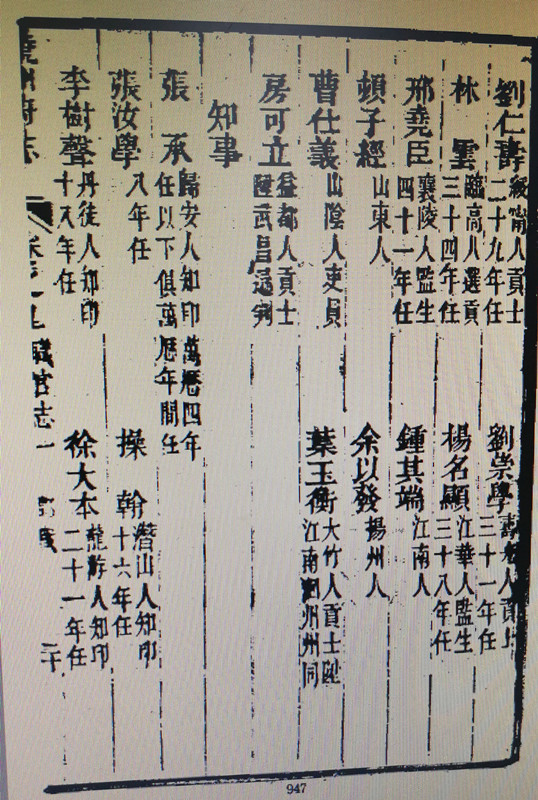 劉仁壽 綏甯人貢士二十九年任 劉崇學 人貢士三十一年任
林雲 臨高人選貢三十四年任 楊名顯 江華人監生三十八年任
邢堯臣 襄陵人監生四十一年任 鍾其端 江南人
頼子經 山東人 余以發 揚州人
曹仕義 山陰人吏員 葉玉衡 大竹人貢士陞江南州州同
房可立 益都人貢士陞武昌通判
知事
張承 歸安人知印萬曆四年任以下俱萬曆年間任
張汝學 八年任 操翰 潛山人知印十六年任
李樹聲 丹徒人知印十八年任 徐大本 龍游人知印二十一年任
府志 職官志一 二十
947